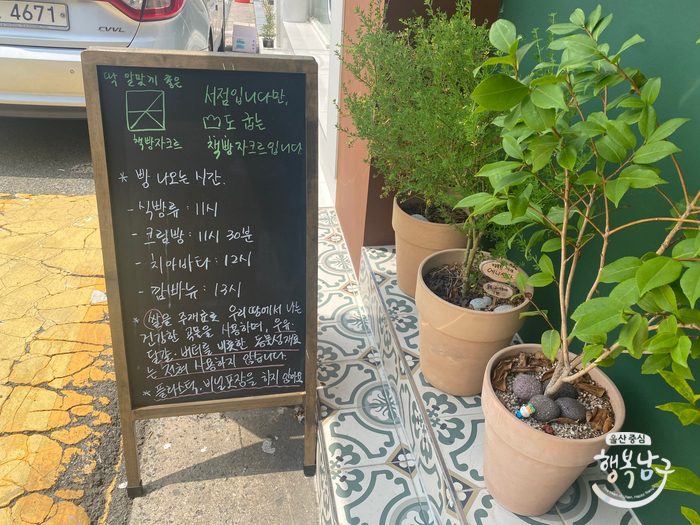 4671
CVVL
딱 알맞게 좋은
책빵자크르
서점입니다만,
도 굽는
책빵자크르입니다
* 빵 나오는 시간.
- 식빵류 : 11시
- 크림빵 : 11시 30분
- 치아바타 : 12시
- 깜바뉴 : 13시
* 쌀을 주재료로 우리땅에서 나는
건강한 곡물을 사용하며, 우유,
달걀, 버터를 비롯한 동물성재료
는 전혀 사용하지 않습니다.
* 플라스틱, 비닐포장을 하지 않아요
울산중심
행복남구